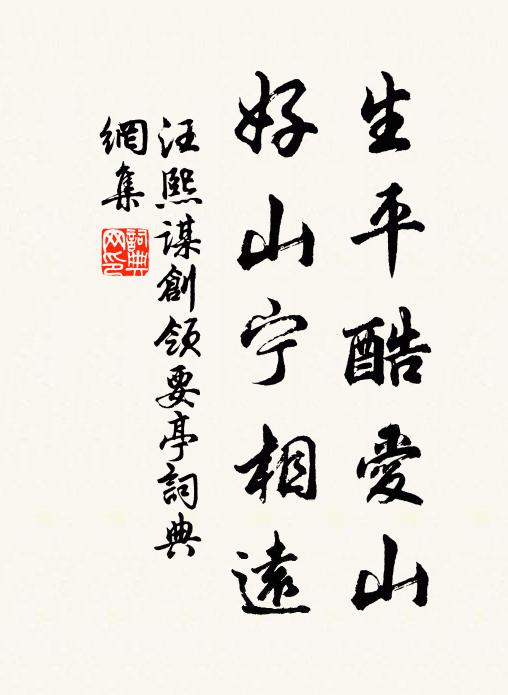 生平酷愛山
好山宁相遠
汪熙謀創領要亭詞典
網集
詞典網印